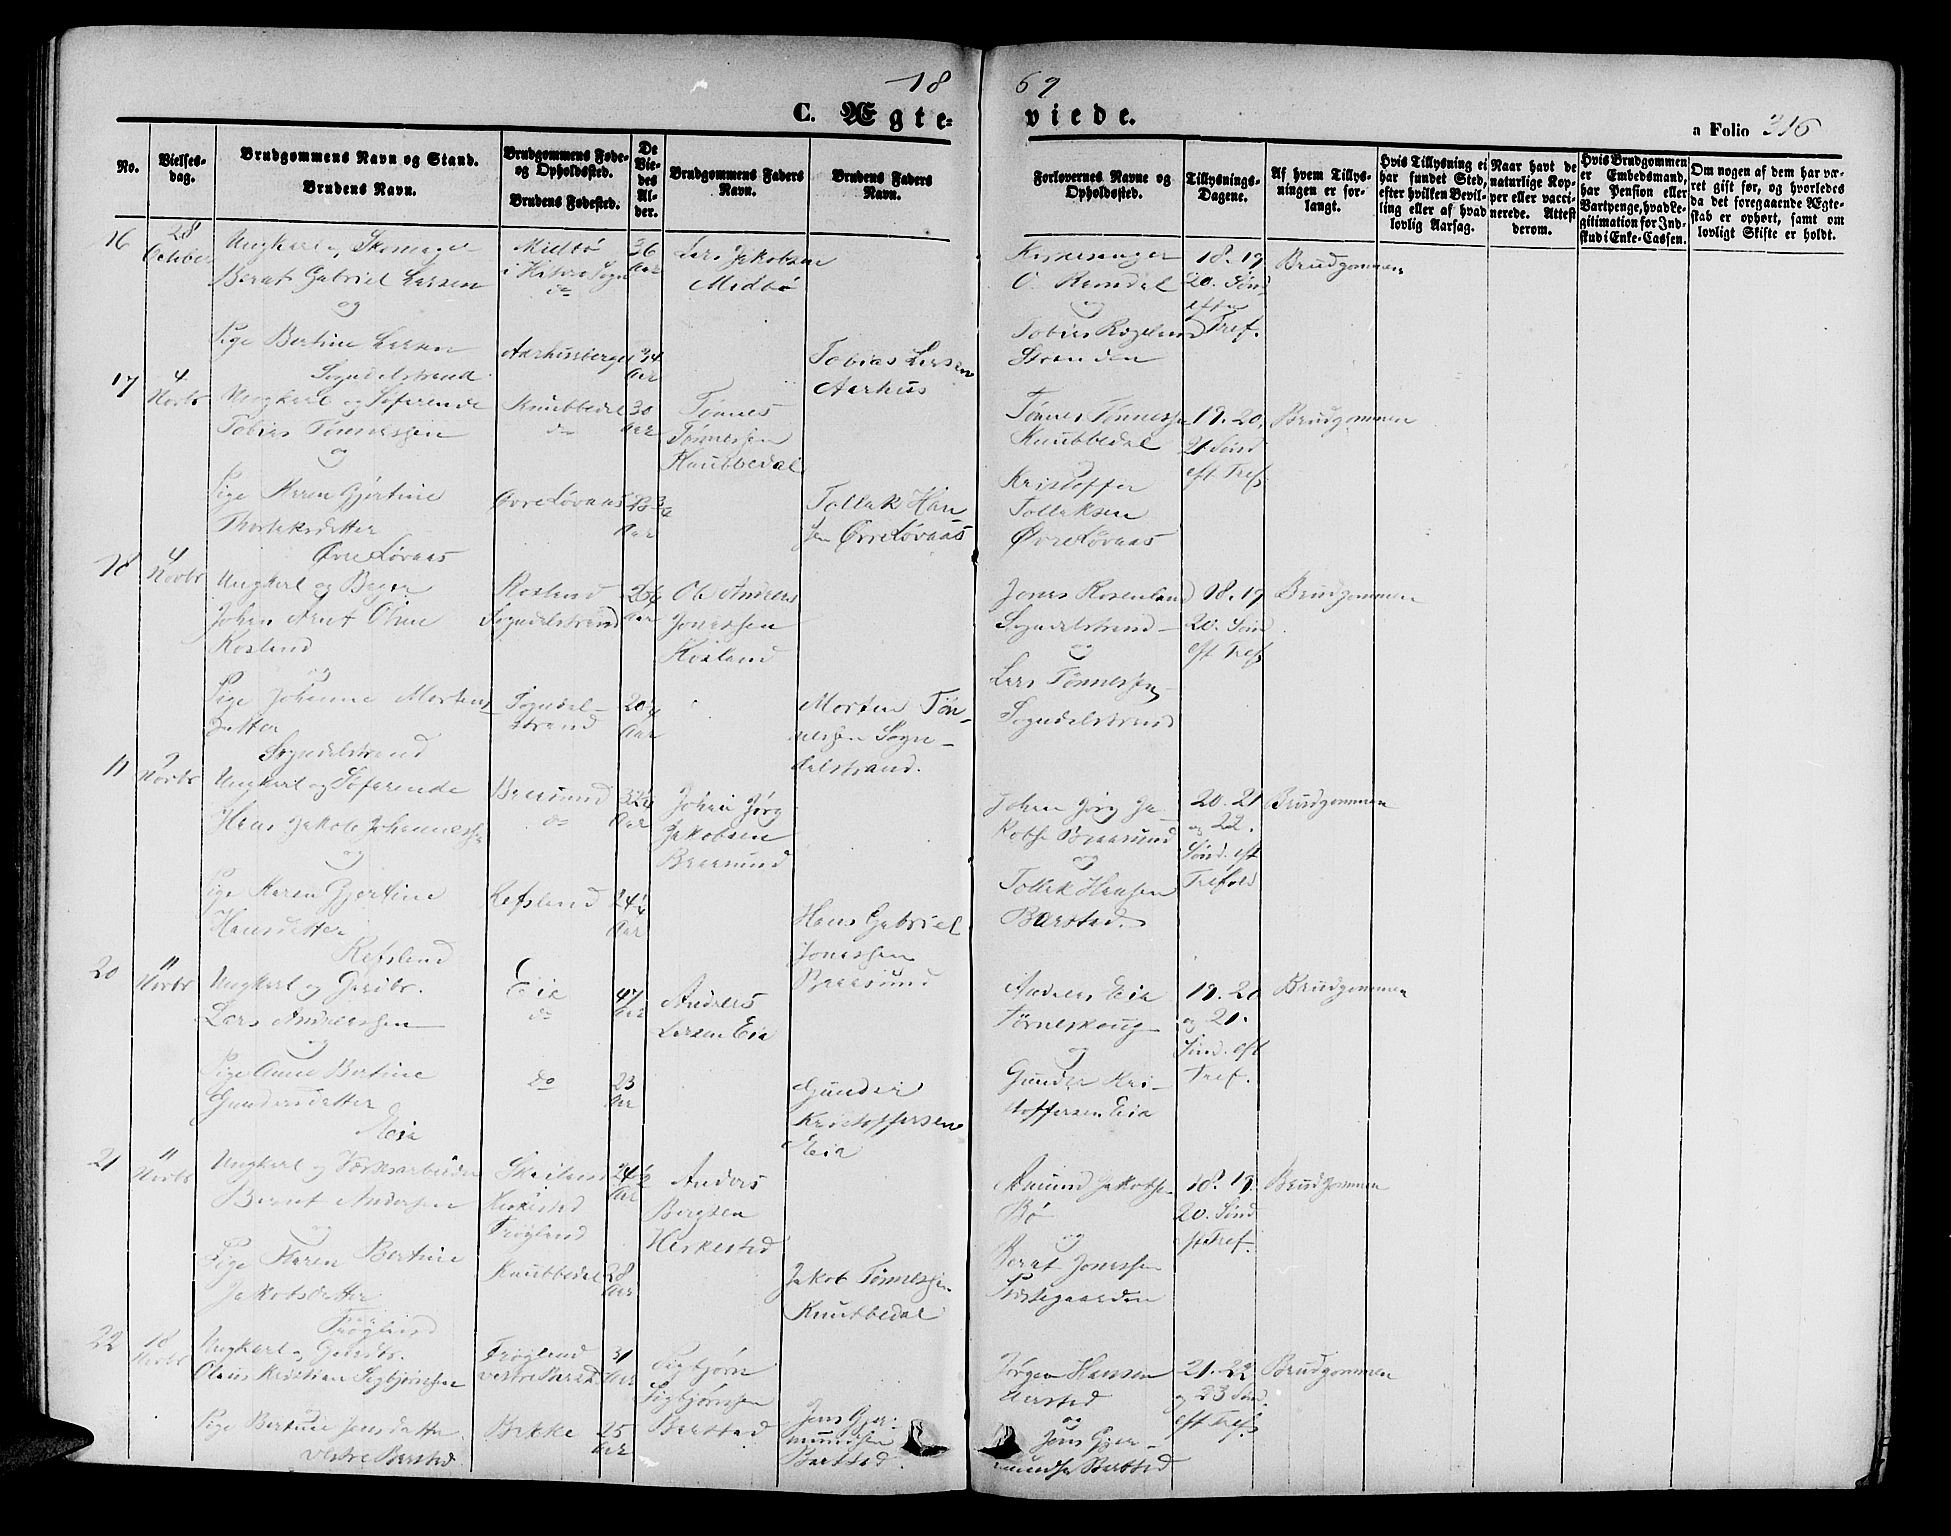 18 69
C. Ægte= viede.
a Folio 316
No.
Vielses-
dag.
Brudgommens Navn og Stand.
Brudens Navn.
Brudgommens Føde-
og Opholdssted.
Brudens Fødested.
De
Vie-
des
Al-
der.
Brudgommens Faders
Navn.
Brudens Faders
Navn.
Forlovernes Navne og
Opholdssted.
Tillysnings-
Dagene.
Af hvem Tillys-
ningen er for-
langt.
Hvis Tillysning ei
har fundet Sted,
efter hvilken Bevil-
ling eller af hvad
lovlig Aarsag.
Naar havt de
naturlige Kop-
per eller vacci-
nerede. Attest
derom.
Hvis Brudgommen
er Embedsmand,
har Pension eller
Vartpenge, hvad Le-
gitimation for Ind-
skud i Enke-Cassen.
Om nogen af dem har væ-
ret gift før, og hvorledes
da det foregaaende Ægte-
skab er ophørt, samt om
lovligt Skifte er holdt.
16
28
October
Ungkarl og Skomager
Berat Gabriel Larsen
og
Pige Bertine Larsen
Sogndalstrand
Midbø
i Sogn
do
Aarhus
36
Aar
34
Aar
Lars Jakobsen
Midbø
Tobias Larsen
Aarhus
Kirkesanger
O. Ramdal
og
Tobias Rægeland
Stranden
18. 19
20. Sønd
efter
Tref.
Brudgommen
17
4
Novbr
Ungkarl og Søfarende
Tobias Tønnessen
og
Pige Karen Gjertine
Øvre Løvaas
Knubbedal
do
Øvre Løvaas
30
Aar
Aar
Tønnes
Tønnessen
Knubbedal
Tollak Han
sen Øvre Løvaas
Tønnes Tønnessen
Knubbedal
Kristoffer
Tollaksen
Øvre Løvaas
19. 20,
21 Sønd
eft Tref
Brudgommen
18
4
Novbr
Ungkarl og
Johan Arnt Olsen
Rosland
og
Pige Johanne Mortens
datter
Sogndalstrand
Rosland
Sogndalstrand
Sogndal-
strand
Aar
Aar
Ole Andreas
Jonassen
Rosland
Morten Tøn-
nessen Sogn-
dalstrand.
Jonas Rosenland
Sogndalstrand
og
Lars Tønnessen
Sogndalstrand
18. 19
20. Sønd
eft Tref
Brudgommen
9
Novbr
Ungkarl og Søfarende
Hans Jakob Johannessen
og
Pige Karen Gjertine
Hansdatter
Refsland
Braasund
do
Refsland
Aar
24 1/4
Aar
Johan Jørg
Jakobsen
Braasund
Hans Gabriel
Jonassen
Braasund
Johan Jørg Ja-
kobsen Braasund
og
Tollak Hansen
Barstad.
20. 21
og 22.
Sønd. eft
Trefold
Brudgommen
20
11
Novbr
Ungkarl og Gaardbr.
Lars Andreassen
og
Pige Anne Bertine
Gundersdatter
Eia
Eia
do
do
47
Aar
23
Aar
Andreas
Larsen Eia
Gunder
Kristoffersen
Eia
Andreas Eia
Tørneskoug
og
Gunder Kri-
stoffersen Eia
19. 20
og 21.
Sønd. eft
Tref.
Brudgommen
21
11
Novbr
Ungkarl og Værksarbeider
Bernt Andersen
og
Pige Karen Bertine
Jakobsdatter
Frøyland
Heskestad
Frøyland
Knubbedal
24 1/2
Aar
28
Aar
Anders
Bergsen
Heskestad
Jakob Tønnessen
Knubbedal
Amund Jakobsen
Bø
og
Bernt Jonassen
Prestegaarden
18. 19.
20. Sønd
eft Tref.
Brudgommen
22
18
Novbr
Ungkarl og Gaardbr.
Olaus Kristian Sigbjørnsen
og
Pige Bertine Jensdatter
vestre Barstad
Frøyland
vestre Barstad
Bakke
31
Aar
25
Aar
Sigbjørn
Sigbjørnsen
Barstad
Jens Gjer-
mundsen
Barstad.
Jørgen Hansen
Aarstad
og
Jens Gjer-
mundsen Barstad
21. 22
og 23 Sønd.
eft Tref
Brudgommen